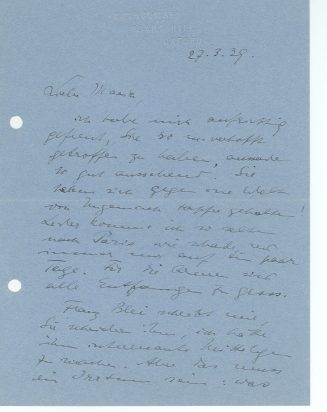 27.3.39.
Lieber
ich habe mich aufrichtig
gefreut, Sie so unverhofft
getroffen zu haben,
so gut aussehend. Sie
haben sich gegen eine Welt
von Ungemach tapfer gehalten!
Leider komme ich so selten
nach Paris wie schade, und
immer nur auf ein paar
Tage. Für Sie
alle zu gross.
Franz Blei schreibt mir,
Sie schreiben ihm, ich hätte
ihm interessante
zu machen. Aber das muss
ein Irrtum sein: was